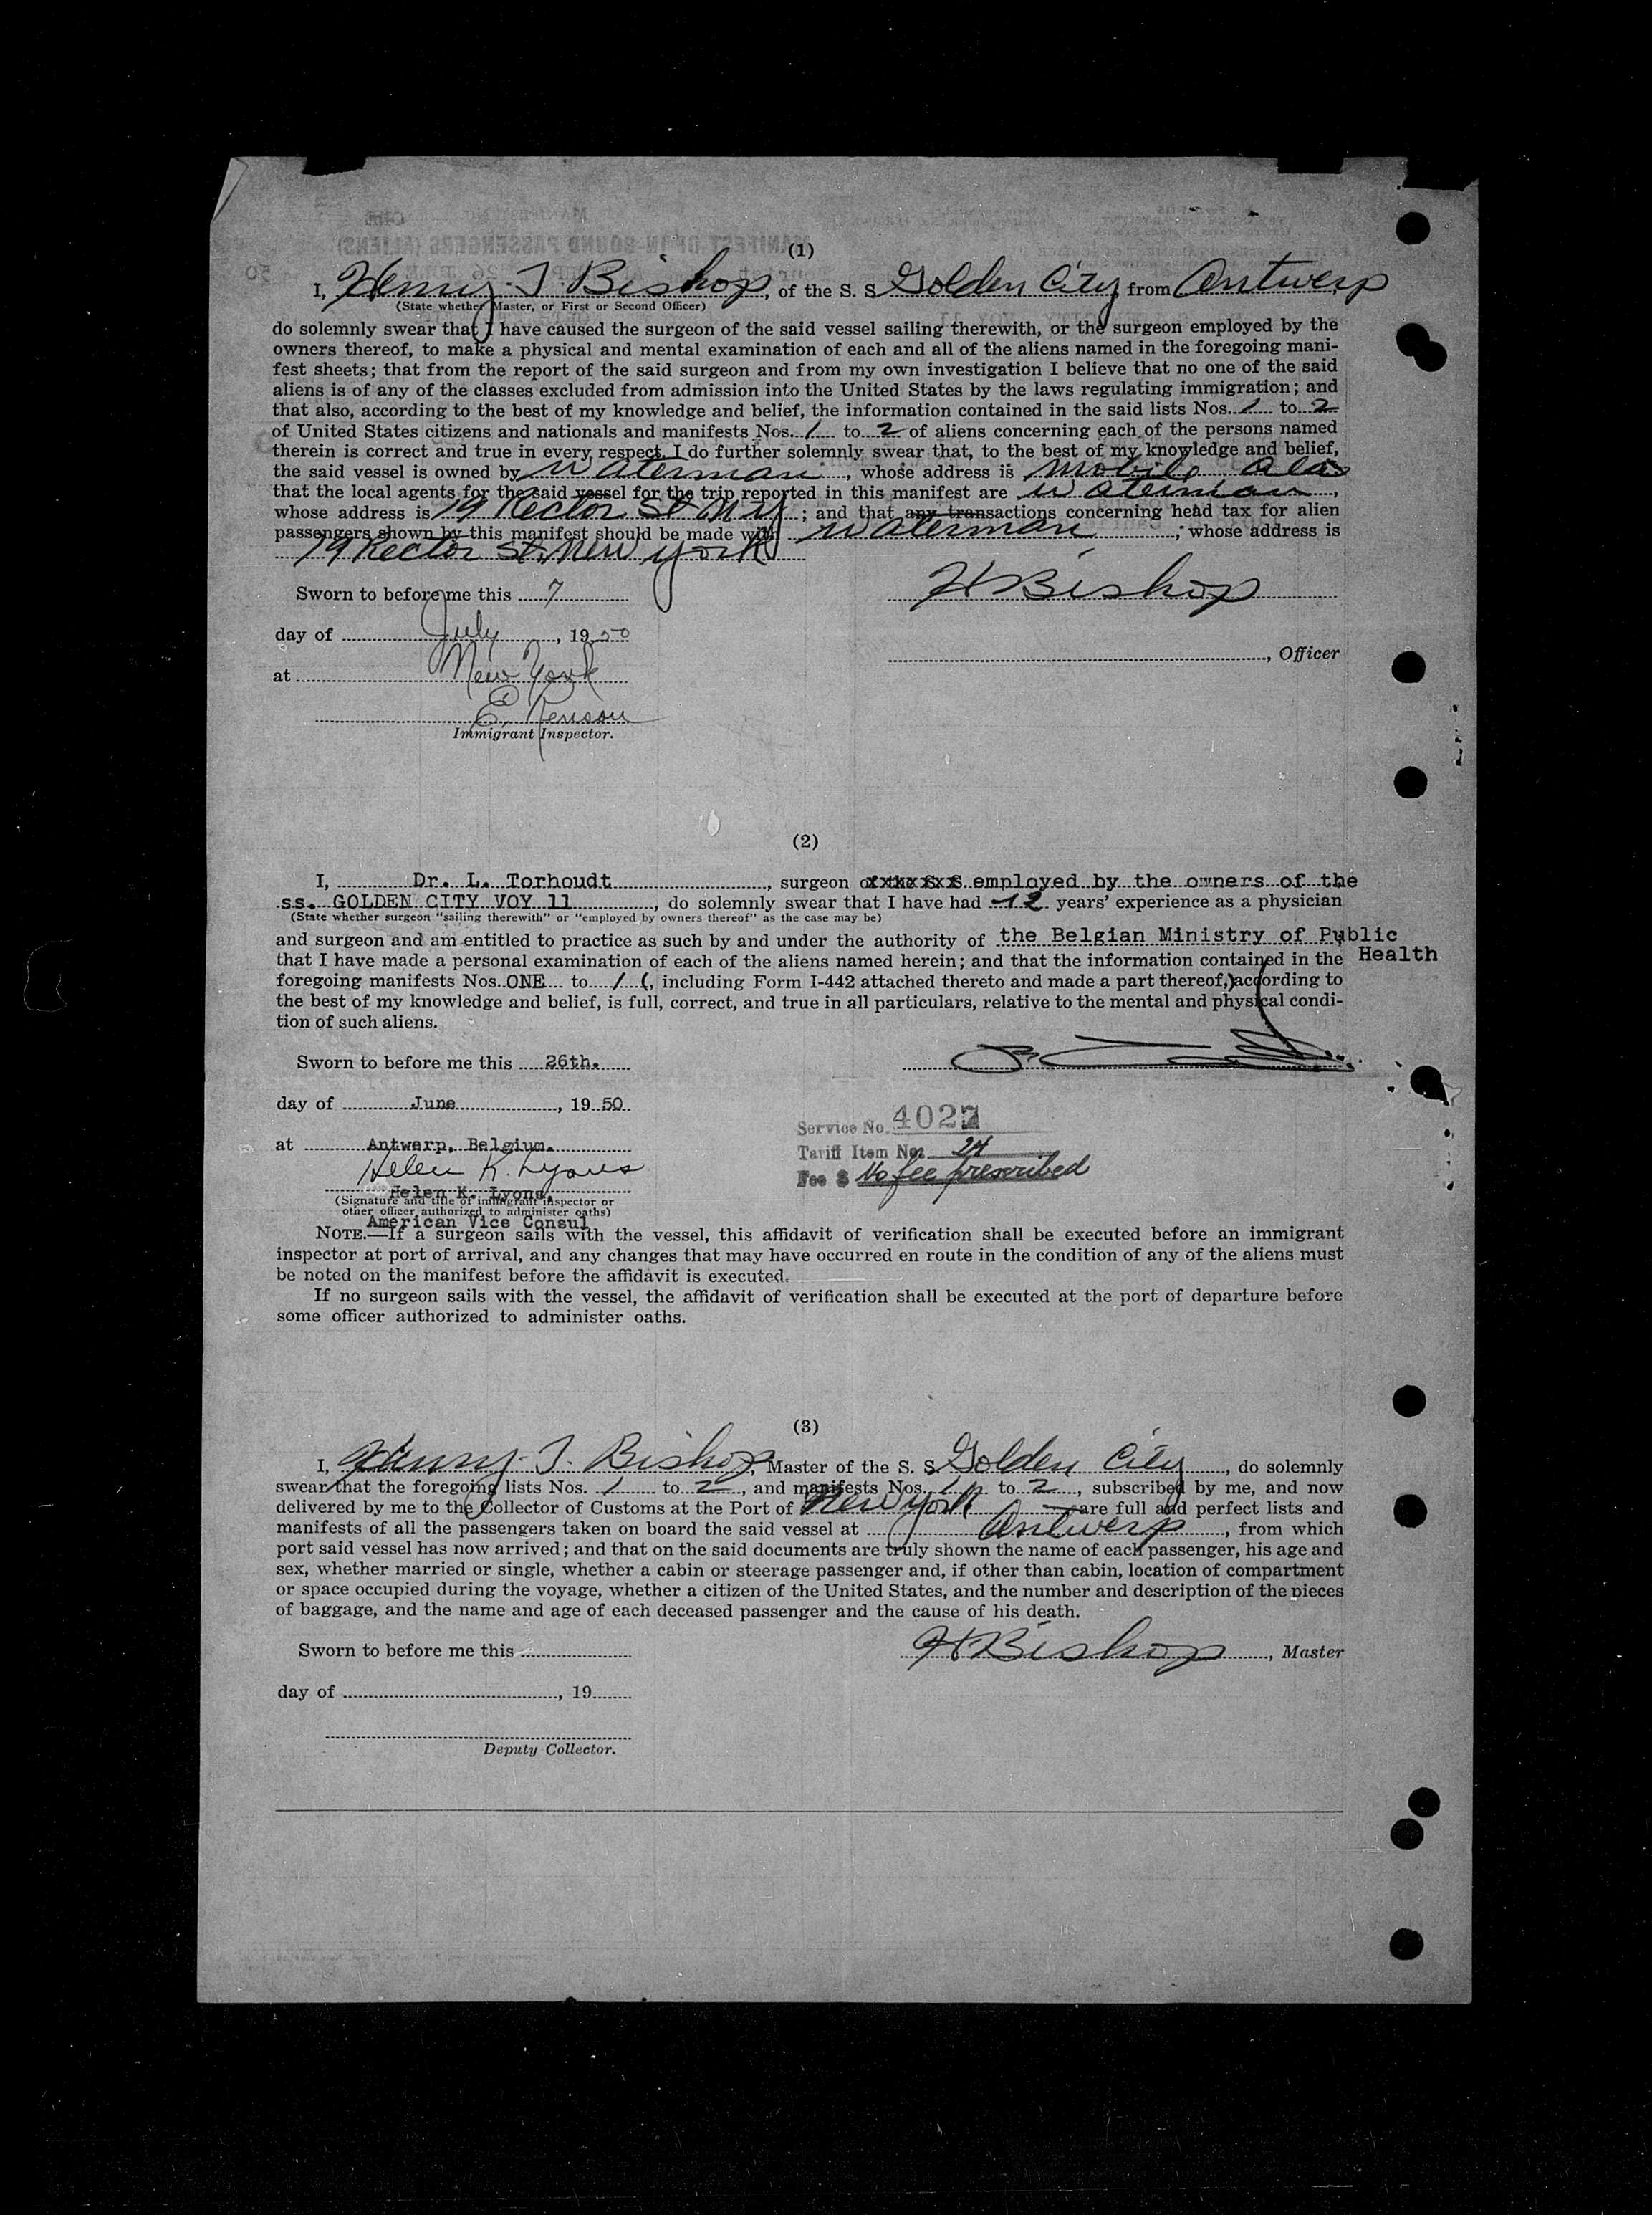 (1)
I, Henry T. Bishop, of the S. S. Golden City from Antwerp
(State whether Master, or First or Second Officer)
do solemnly swear that I have caused the surgeon of the said vessel sailing therewith, or the surgeon employed by the
owners thereof, to make a physical and mental examination of each and all of the aliens named in the foregoing mani-
fest sheets; that from the report of the said surgeon and from my own investigation I believe that no one of the said
aliens is of any of the classes excluded from admission into the United States by the laws regulating immigration; and
that also, according to the best of my knowledge and belief, the information contained in the said lists Nos. 1 to 2
of United States citizens and nationals and manifests Nos. 1 to 2 of aliens concerning each of the persons named
therein is correct and true in every respect. I do further solemnly swear that, to the best of my knowledge and belief,
the said vessel is owned by Waterman, whose address is Mobile Ala
that the local agents for the said vessel for the trip reported in this manifest are Waterman,
whose address is 19 Rector St N Y; and that any transactions concerning head tax for alien
passengers shown by this manifest should be made with Waterman; whose address is
19 Rector St, New York
Sworn to before me this 7
H Bishop
day of July, 1950
, Officer
at New York
E. Kenson
Immigrant Inspector.
(2)
I, Dr. L. Torhoudt, surgeon employed by the owners of the
ss. GOLDEN CITY VOY 11, do solemnly swear that I have had 12 years' experience as a physician
(State whether surgeon "sailing therewith" or "employed by owners thereof" as the case may be)
and surgeon and am entitled to practice as such by and under the authority of the Belgian Ministry of Public
that I have made a personal examination of each of the aliens named herein; and that the information contained in the Health
foregoing manifests Nos. ONE to 1 (, including Form I-442 attached thereto and made a part thereof,) according to
the best of my knowledge and belief, is full, correct, and true in all particulars, relative to the mental and physical condi-
tion of such aliens.
Sworn to before me this 26th.
day of June, 1950
Service No. 4027
at Antwerp, Belgium.
Tariff Item No. 24
Helen K. Lyons
Fee $ No fee prescribed
Helen K. Lyons,
(Signature and title of immigrant inspector or
other officer authorized to administer oaths)
American Vice Consul
NOTE.—If a surgeon sails with the vessel, this affidavit of verification shall be executed before an immigrant
inspector at port of arrival, and any changes that may have occurred en route in the condition of any of the aliens must
be noted on the manifest before the affidavit is executed.
If no surgeon sails with the vessel, the affidavit of verification shall be executed at the port of departure before
some officer authorized to administer oaths.
(3)
I, Henry T. Bishop, Master of the S. S. Golden City, do solemnly
swear that the foregoing lists Nos. 1 to 2, and manifests Nos. 1 to 2, subscribed by me, and now
delivered by me to the Collector of Customs at the Port of New York are full and perfect lists and
manifests of all the passengers taken on board the said vessel at Antwerp, from which
port said vessel has now arrived; and that on the said documents are truly shown the name of each passenger, his age and
sex, whether married or single, whether a cabin or steerage passenger and, if other than cabin, location of compartment
or space occupied during the voyage, whether a citizen of the United States, and the number and description of the pieces
of baggage, and the name and age of each deceased passenger and the cause of his death.
Sworn to before me this
H Bishop, Master
day of , 19
Deputy Collector.